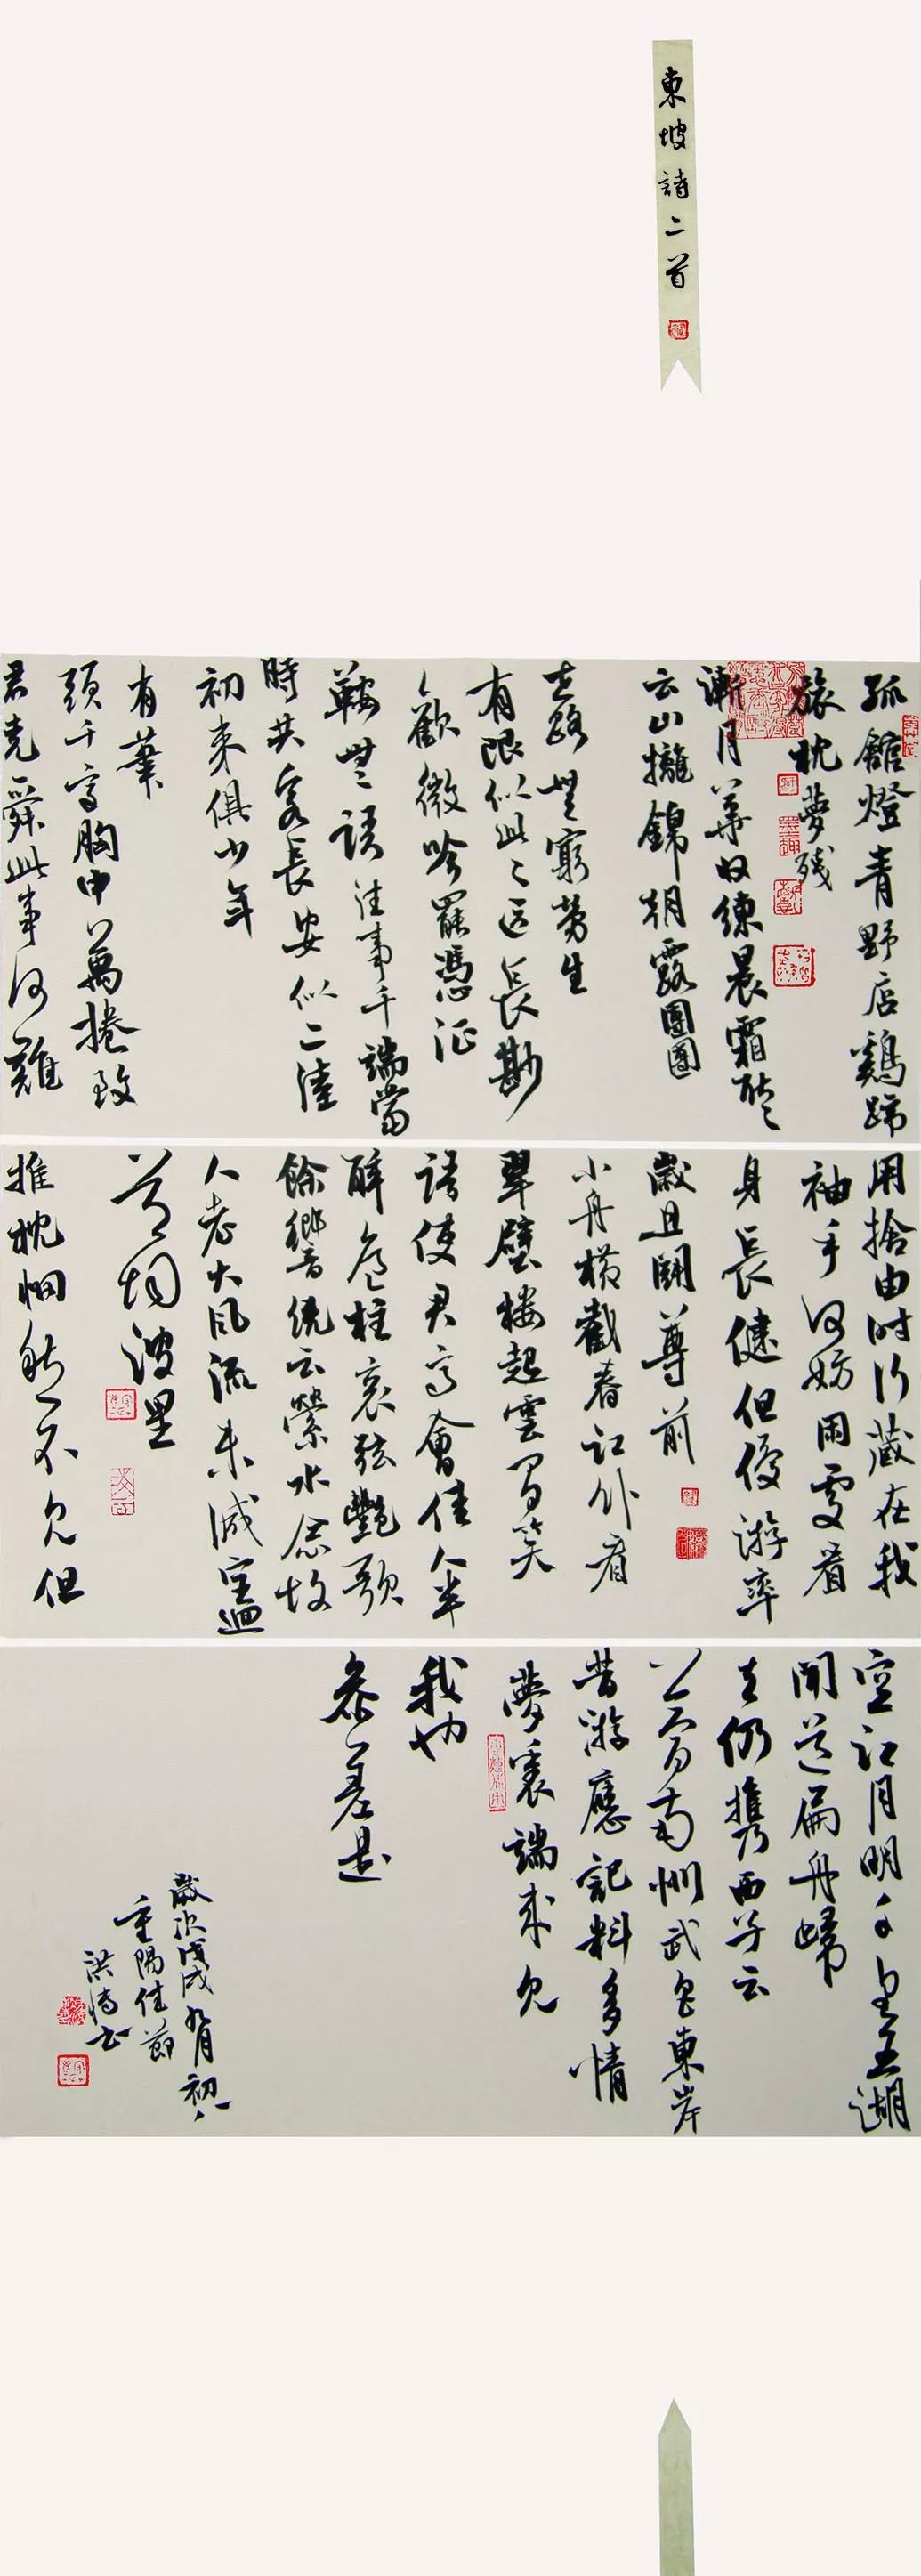 東坡詩二首
孤館燈青野店鷄啼
旅枕夢残
漸月華收練晨霜耿〻
云山攡錦朝露團團
世路無窮勞生
有限似此〻區長尠
〻歡微吟罷憑征
鞍無語往事千端當
時共客長安似二陸
初來俱少年
有筆
頭千字胸中萬捲致
君堯舜此事何難
用捨由時行藏在我
袖手何妨閑處看
身長健但優游卒
歲且鬭尊前
小舟橫截春江卧看
翠壁樓起雲間笑
語使君高會佳人半
醉危柱哀弦艷歌
餘響繞云縈水念故
人老大風流未減空迴
首烟波里
推枕惘然不見但
空江月明千里五湖
聞道扁舟歸
去仍攜西子云
南州武昌東岸
昔游應記料多情
夢裏端來見
我也
參差是
歲次戊戌九月初八
重陽佳節
洪濤書